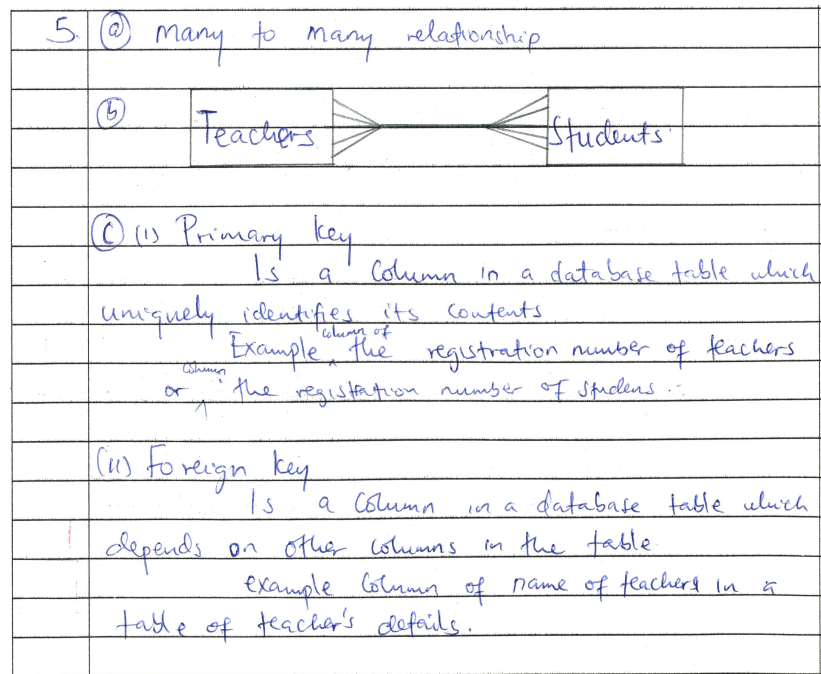 5. (a) many to many relationship
(b)
Teachers Students
(c) (i) Primary key
Is a column in a database table which
uniquely identifies its contents
column of
Example ^ the registration number of teachers
column
or ^ the registration number of studens.
(ii) Foreign key
Is a column in a database table which
depends on other columns in the table.
example column of name of teachers in a
table of teacher's details.